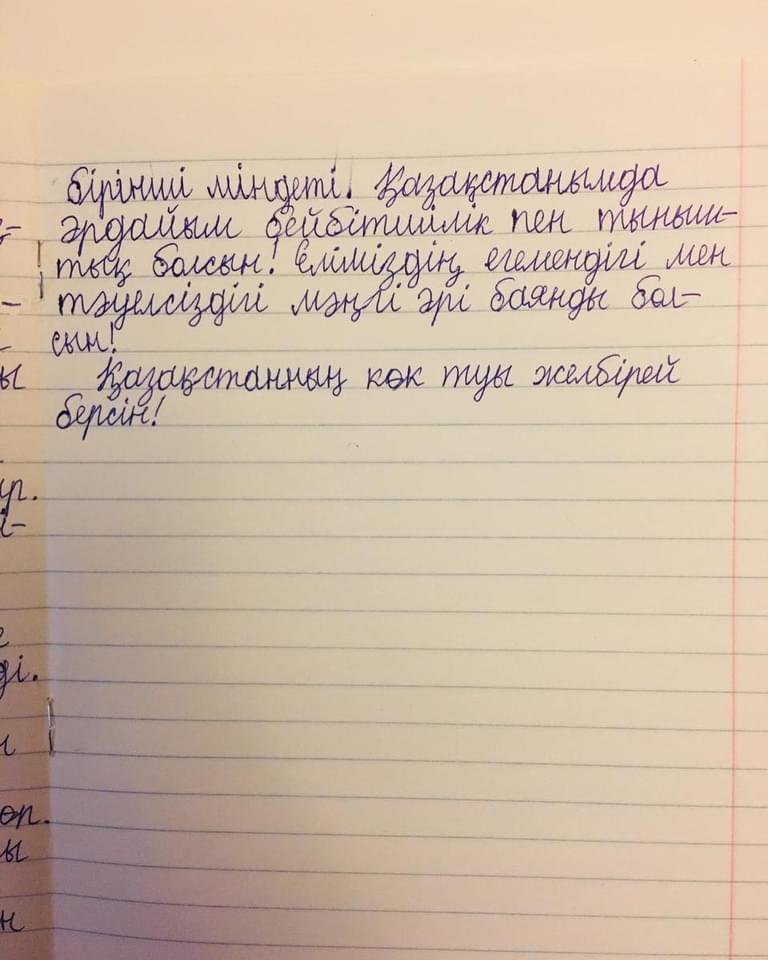 бірінші міндеті. Қазақстанымда
әрдайым бейбітшілік пен тыныш-
тық болсын! Еліміздің егемендігі мен
тәуелсіздігі мәңгі әрі баянды бол-
сын!
Қазақстанның көк туы желбірей
берсін!